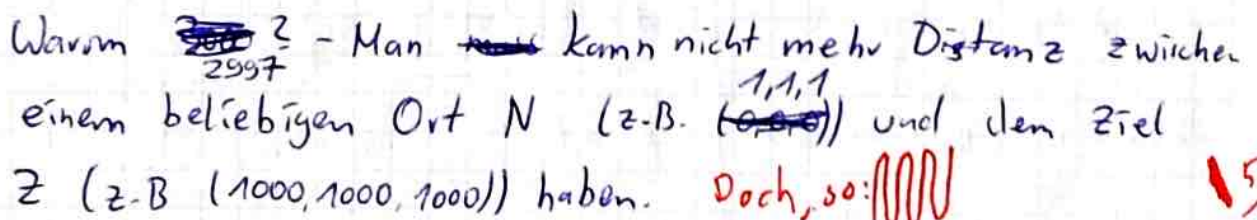 Warum 2997? - Man kann nicht mehr Distanz zwischen
einem beliebigen Ort N (z.B. (1,1,1)) und dem Ziel
Z (z.B (1000, 1000, 1000)) haben. Doch, so:
5